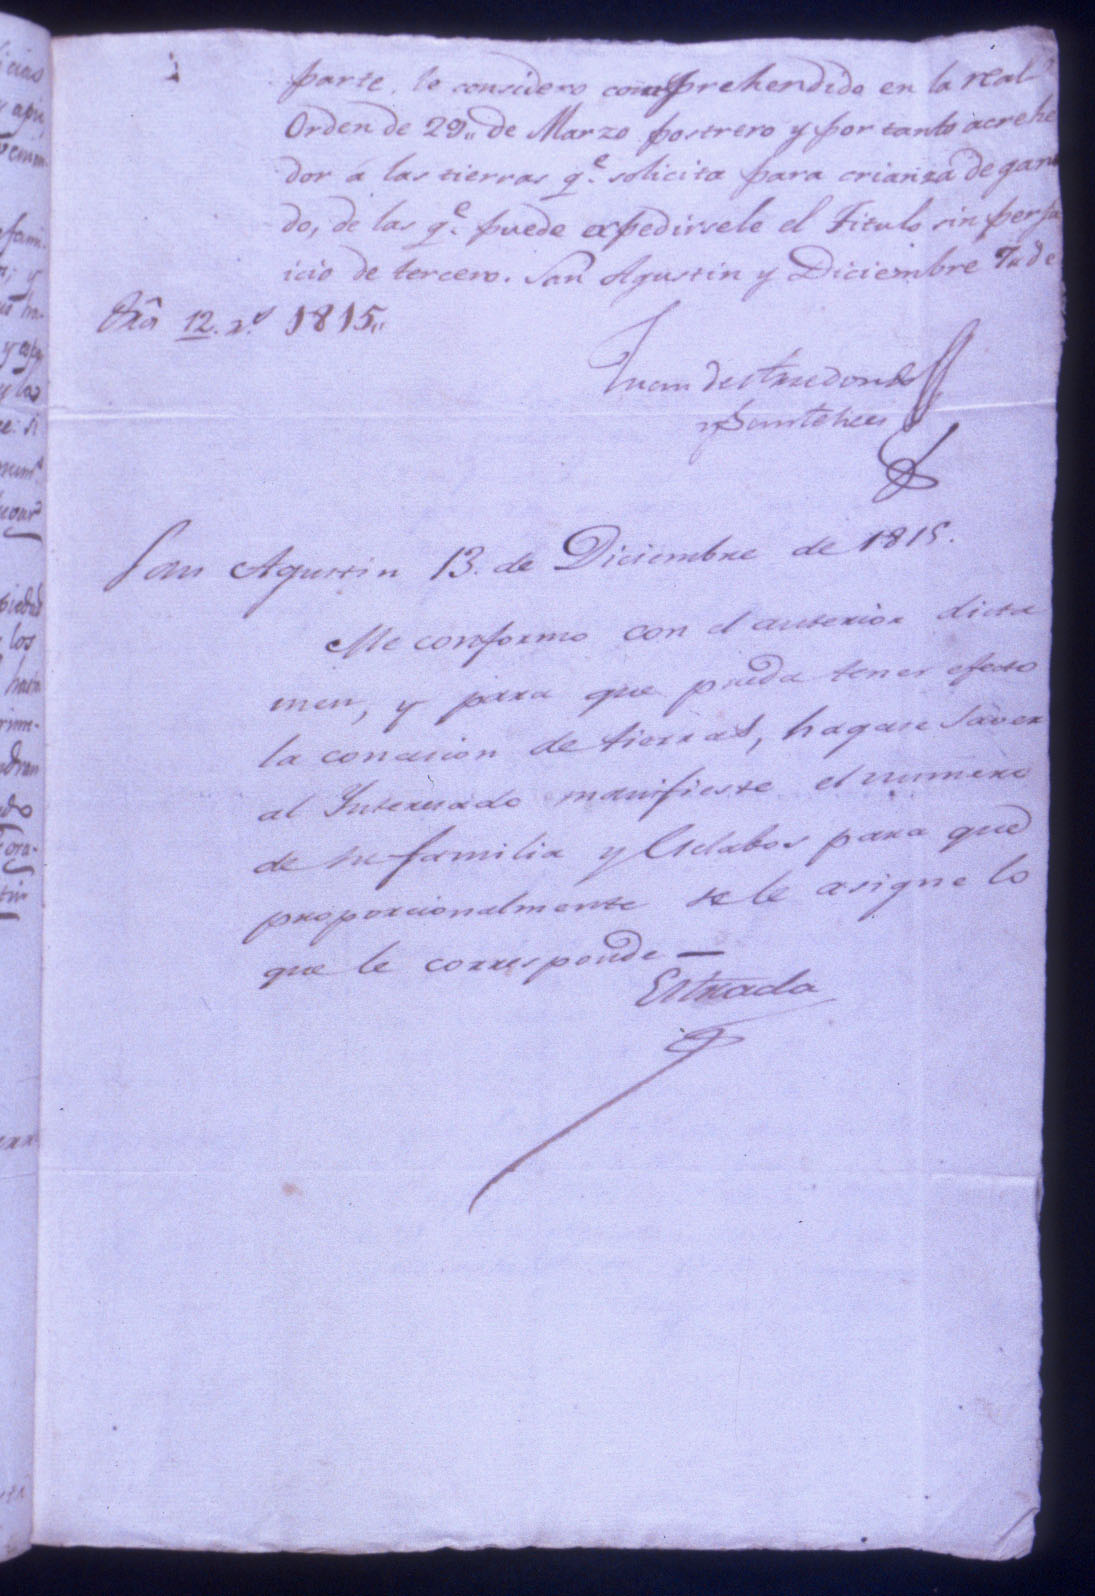 parte, lo considero comprehendido en la real
Orden de 29,, de Marzo postrero y por tanto acrehe
dor a las tierras q.e solicita para crianza de gana
do, de las q.e puede expedirsele el Titulo sin perju
icio de tercero. San Agustin y Diciembre 7,, de
12. r.s 1815,,
Juan de Arredondo
y Santelices
San Agustin 13. de Diciembre de 1815.
Me conformo con el anterior dicta
men, y para que pueda tener efecto
la concesion de tierras, hagase saver
al Interesado manifieste el numero
de su familia y Esclabos para que
proporcionalmente se le asigne lo
que le corresponde —
Estrada